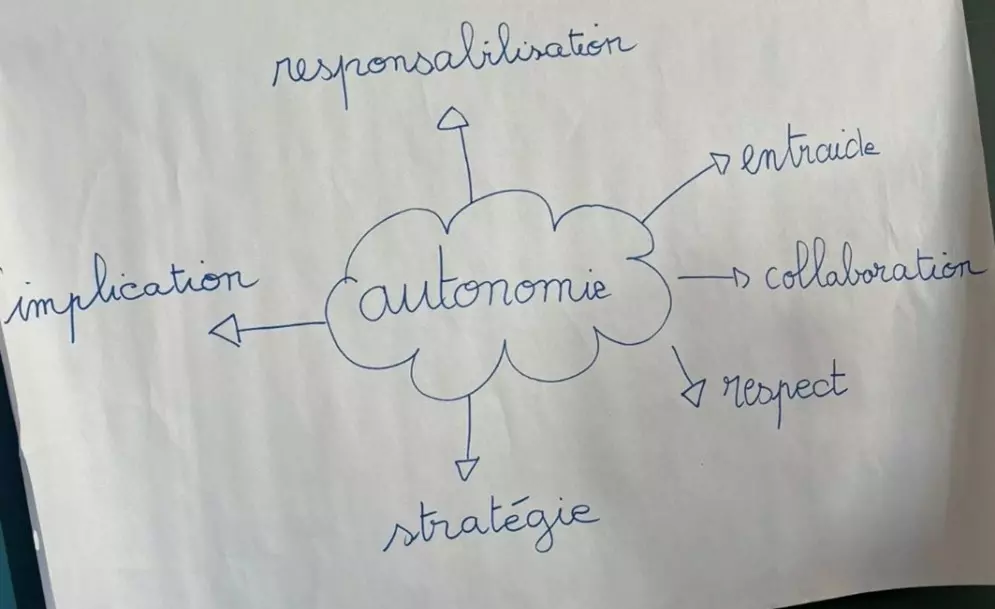 responsabilisation
entraide
implication
autonomie
collaboration
respect
stratégie